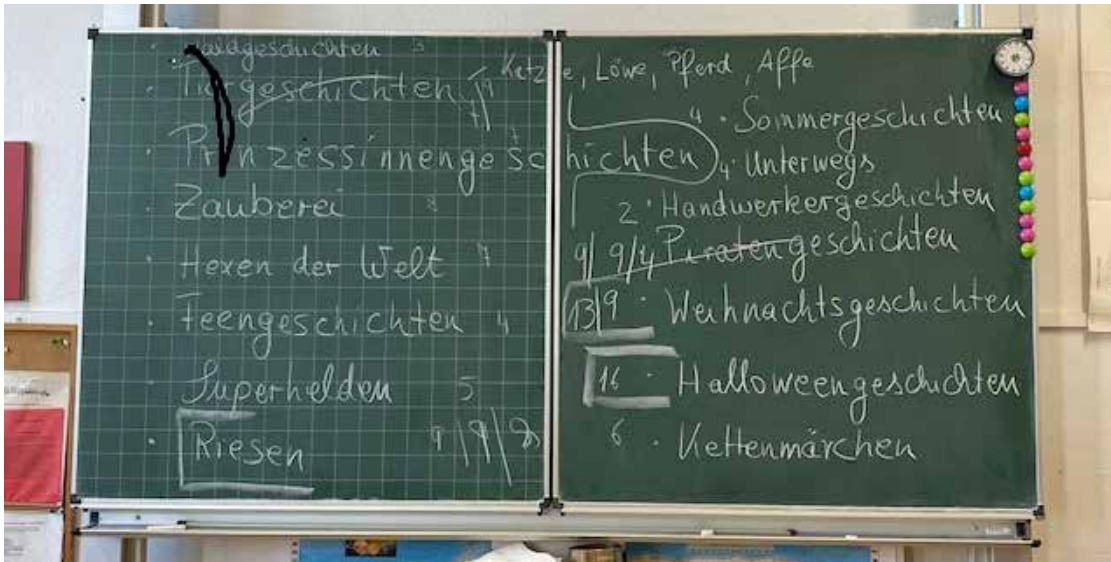 Waldgeschichten 3
Tiergeschichten 7/9 Katze, Löwe, Pferd, Affe
Prinzessinnengeschichten 7
Zauberei 8
Hexen der Welt 7
Feengeschichten 4
Superhelden 5
Riesen 9/9/8
4 · Sommergeschichten
4 · Unterwegs
2 · Handwerkergeschichten
9/9/4 Piratengeschichten
13/9 · Weihnachtsgeschichten
16 · Halloweengeschichten
6 · Kettenmärchen